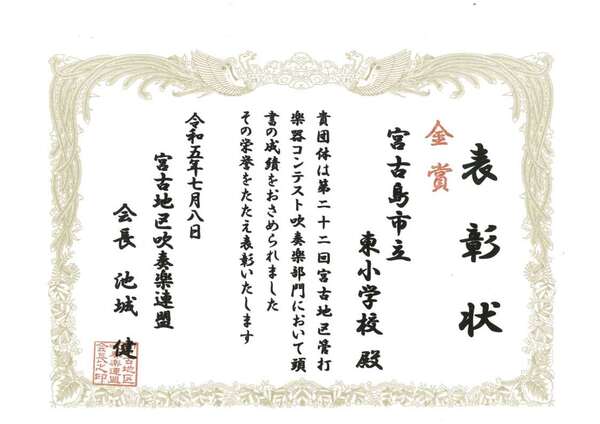 表彰状
金賞
宮古島市立
東小学校 殿
貴団体は第二十二回宮古地区管打
楽器コンテスト吹奏楽部門において頭
書の成績をおさめられました
その栄誉をたたえ表彰いたします
令和五年七月八日
宮古地区吹奏楽連盟
会長 池城 健
宮古地区
吹奏楽連盟
会長之印